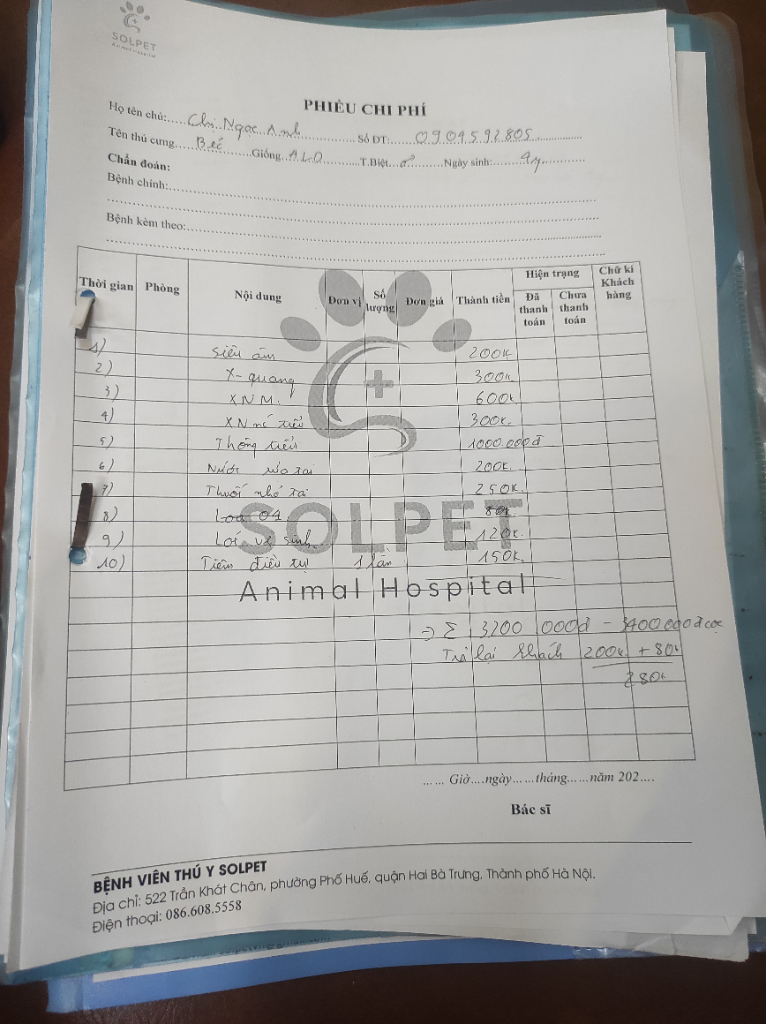 SOLPET
Animal Hospital
PHIẾU CHI PHÍ
Họ tên chủ:.....Chị Ngọc Anh..................Số ĐT:.......0904592805...............
Tên thú cưng.....Béc........Giống..ALO............T.Biệt..♂........Ngày sinh:.......9y............
Chẩn đoán:
Bệnh chính:
Bệnh kèm theo:
Thời gian Phòng Nội dung Đơn vị Số lượng Đơn giá Thành tiền Hiện trạng Đã thanh toán Chưa thanh toán Chữ kí Khách hàng
1) Siêu âm 200k
2) X-quang 300k
3) XNM. 600k
4) XN nc tiểu 300k.
5) Thông tiểu 1000.000đ
6) Nước rửa tai 200k.
7) Thuốc nhỏ tai 250k.
8) Loa 04 80k
9) Lót vệ sinh 120k.
10) Tiêm điều trị 1 lần 150k.
SOLPET
Animal Hospital
=> Σ 3200 000đ - 3400 000đ cọc
Trả lại khách 200k + 80k
280k
...... Giờ....ngày......tháng......năm 202....
Bác sĩ
BỆNH VIÊN THÚ Y SOLPET
Địa chỉ: 522 Trần Khát Chân, phường Phố Huế, quận Hai Bà Trưng, Thành phố Hà Nội.
Điện thoại: 086.608.5558